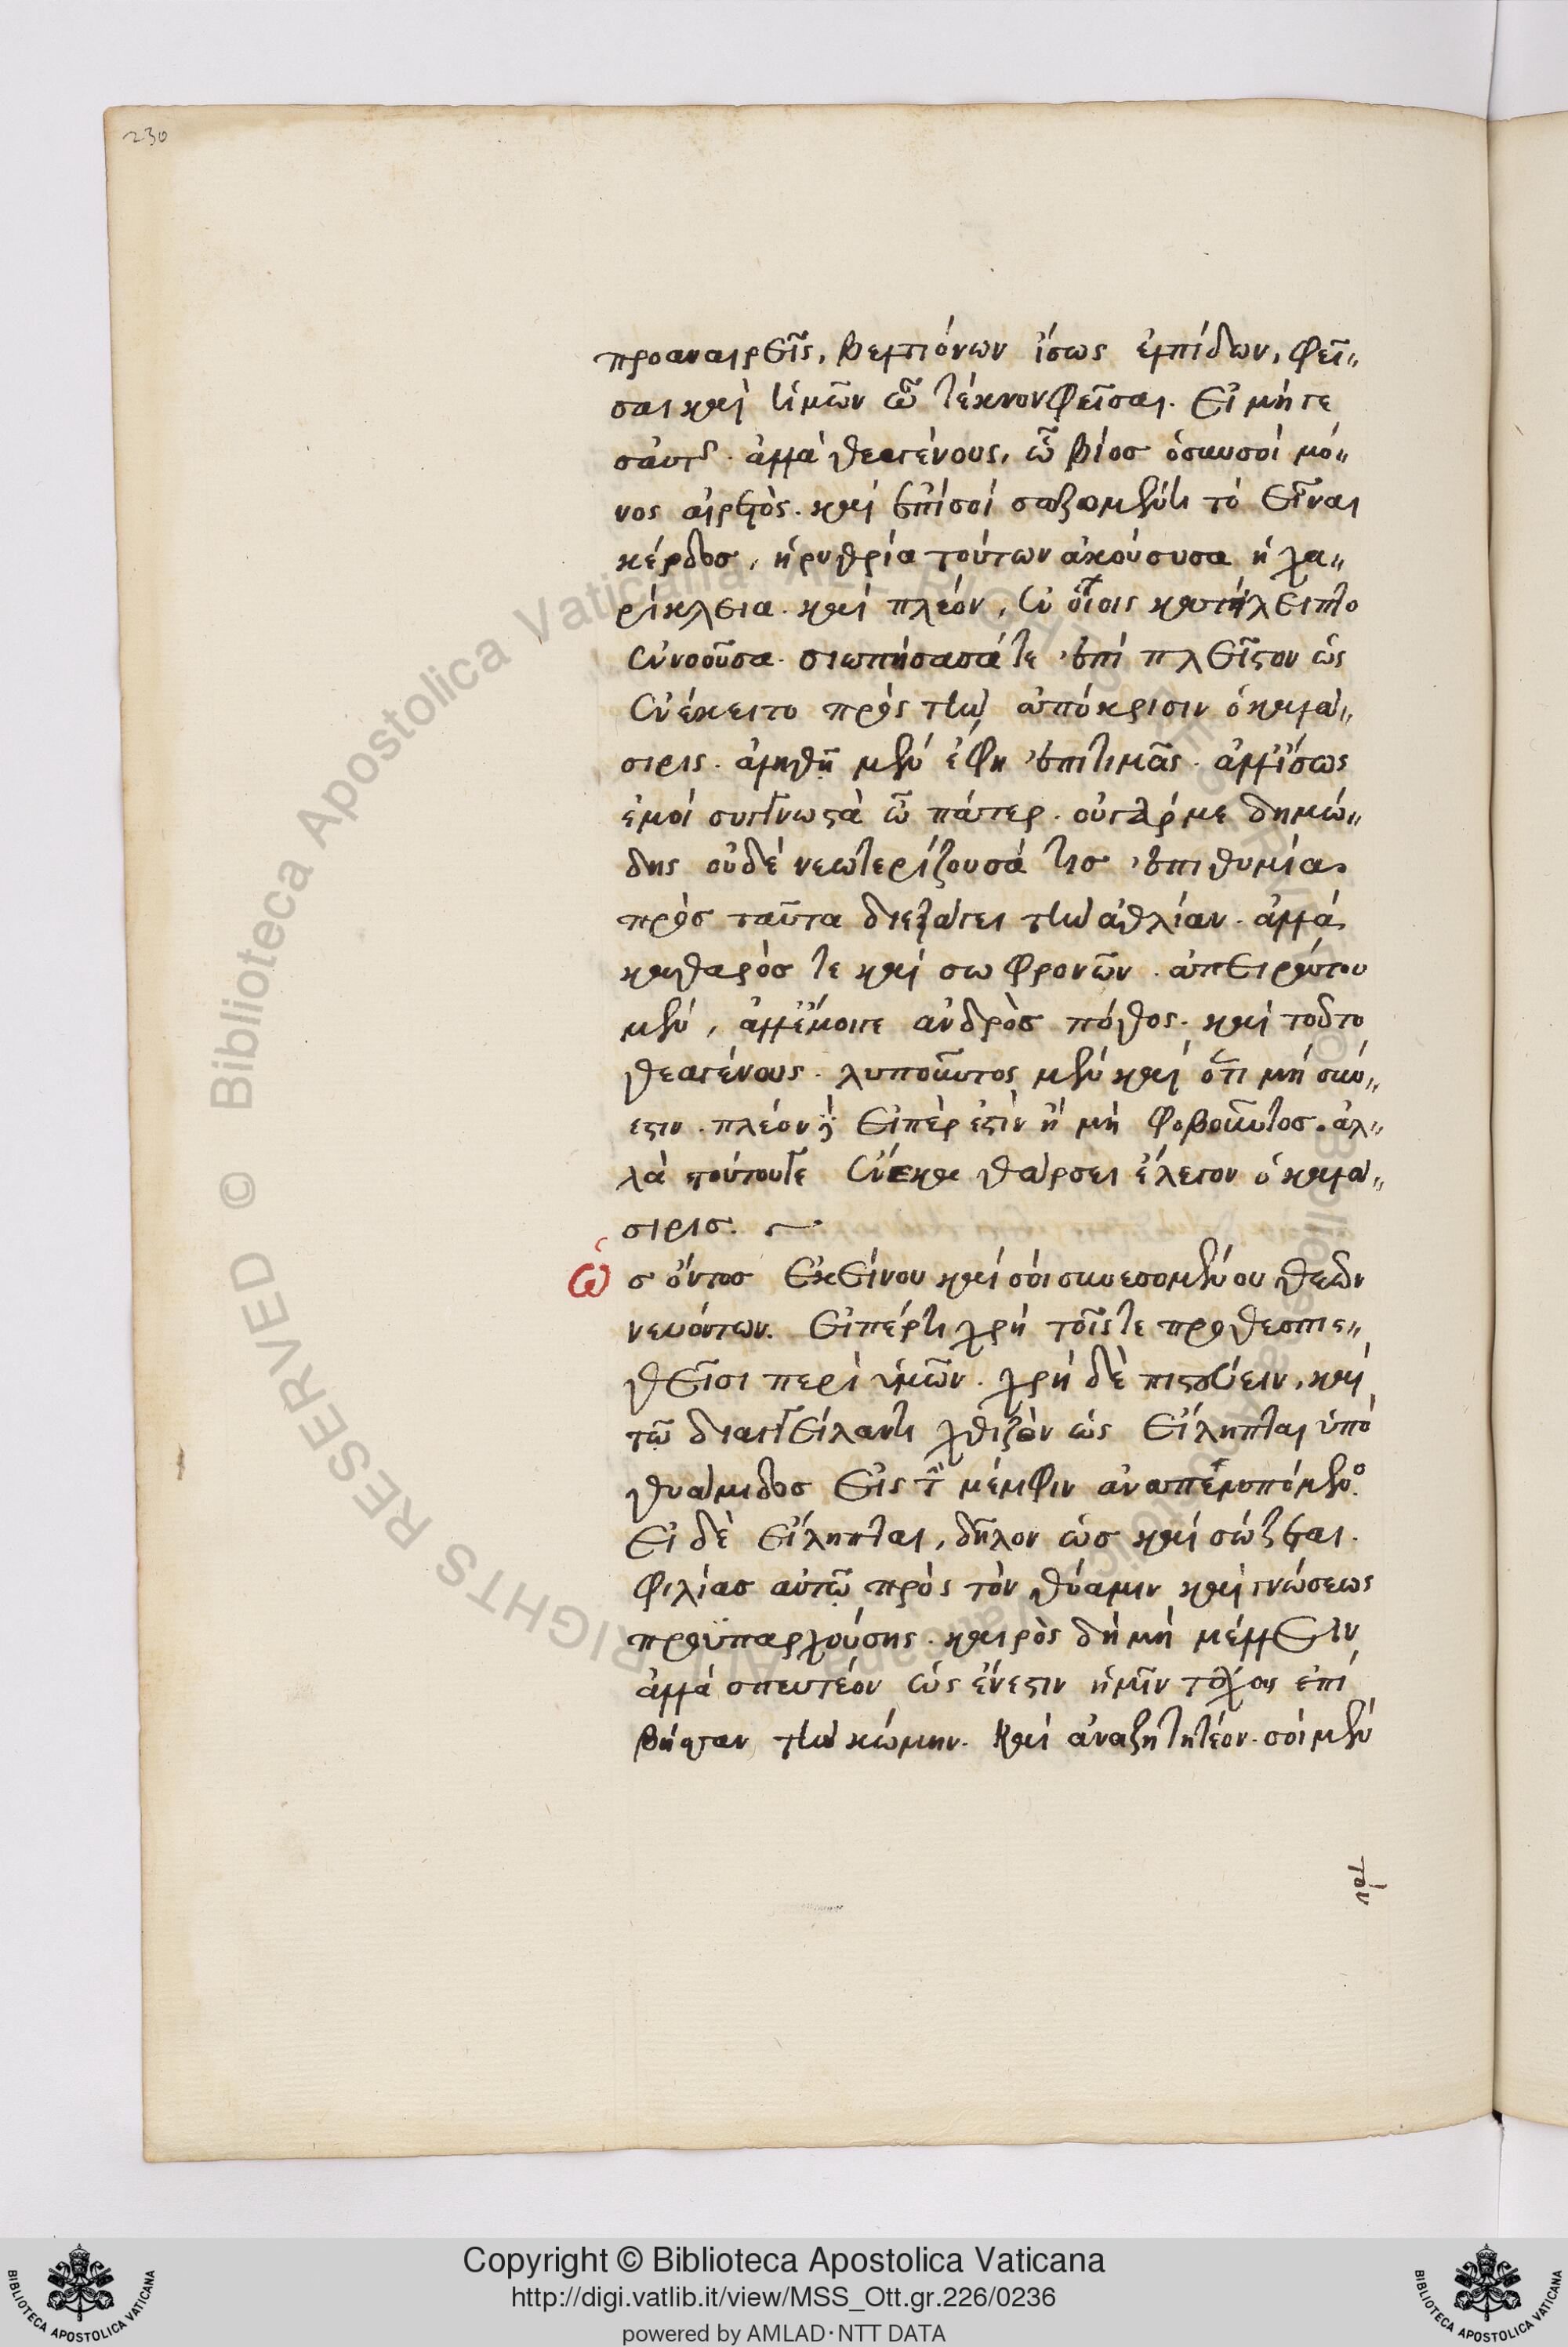 230
προαναιρεῖς, βελτιόνων ἴσως ἐλπίδων, φεῖ〃
σαι καὶ ἡμῶν ὦ τέκνον φεῖσαι. εἰ μή γε
σαυτῆς. ἀλλὰ θεαγένους, ὧ βίος ὁ σὺν σοὶ μό〃
νος αἱρετὸς. καὶ ἐπὶ σοὶ σωζομένη τὸ εἶναι
κέρδος, ἠρυθρία τούτων ἀκούουσα ἡ χα〃
ρίκλεια. καὶ πλέον, ἐν οἵοις κατείλειπτο
ἐννοοῦσα. σιωπήσασά τε ἐπὶ πλεῖστον ὡς
ἐνέκειτο πρὸς τὴν ἀπόκρισιν ὁ καλά〃
σιρις. ἀληθῆ μὲν ἔφη ἐπιτιμᾶς. ἀλλ' ἴσως
ἐμοὶ συγγνωστὰ ὦ πάτερ. οὐ γάρ με δημώ〃
δης οὐδὲ νεωτερίζουσά τις ἐπιθυμία
πρὸς ταῦτα διεξάγει τὴν ἀθλίαν. ἀλλὰ
καθαρός τε καὶ σωφρονῶν. ἀπειράτου
μὲν, ἀλλ' ἔμοιγε ἀνδρὸς πόθος. καὶ τοῦτο
θεαγένους. λυποῦντος μὲν καὶ ὅτι μὴ σύν〃
εστιν. πλέον δὲ εἰπὲρ ἐστὶν ἢ μὴ φοβοῦντος. ἀλ〃
λὰ τούτου γε ἕνεκα θάρσει ἔλεγον ὁ καλά〃
σιρις.
ὡς ὄντος ἐκείνου καὶ σοὶ συνεσομένου θεῶν
νευόντων. εἰπέρ τι χρὴ τοῖς τε προθεσπισ〃
θεῖσι περὶ ὑμῶν. χρὴ δὲ πιστεύειν, καὶ
τῷ διαγγείλαντι χθιζὸν ὡς εἴληπται ὑπὸ
θυάμιδος εἰς τὴν μέμφιν ἀναπεμπόμενος.
εἰ δὲ εἴληπται, δῆλον ὡς καὶ σώζεται.
φιλίας αὐτῷ πρὸς τὸν θύαμιν καὶ γνώσεως
προϋπαρχούσης. καιρὸς δὴ μὴ μέλλειν
ἀλλὰ σπευστέον ὡς ἔνεστιν ἡμῖν τάχος ἐπὶ
βῆσσαν τὴν κώμην. καὶ ἀναζητητέον. σοὶ μὲν
τὸν
Copyright © Biblioteca Apostolica Vaticana
http://digi.vatlib.it/view/MSS_Ott.gr.226/0236
powered by AMLAD·NTT DATA